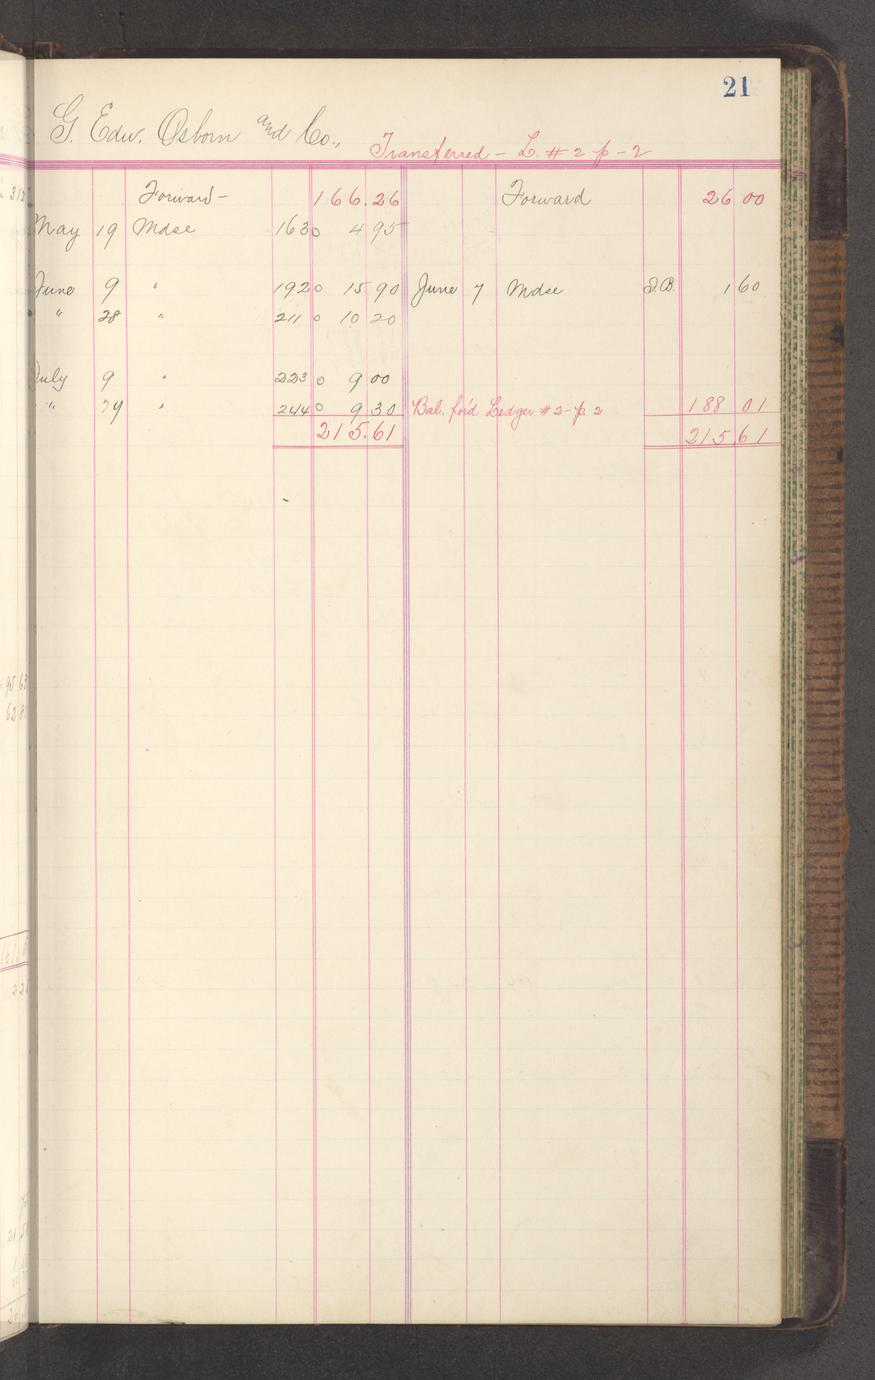 21
G. Edw. Osborn and Co.,
Transferred - L. # 2 p - 2
Forward - 166.26 Forward 26 00
May 19 Mdse 163 0 4 95
June 9 " 192 0 15 90 June 7 Mdse J.B. 1 60
" 28 " 211 0 10 20
July 9 " 223 0 9 00
" 29 " 244 0 9 30 Bal. for'd Ledger # 2 - p. 2 188 01
215.61 215 61